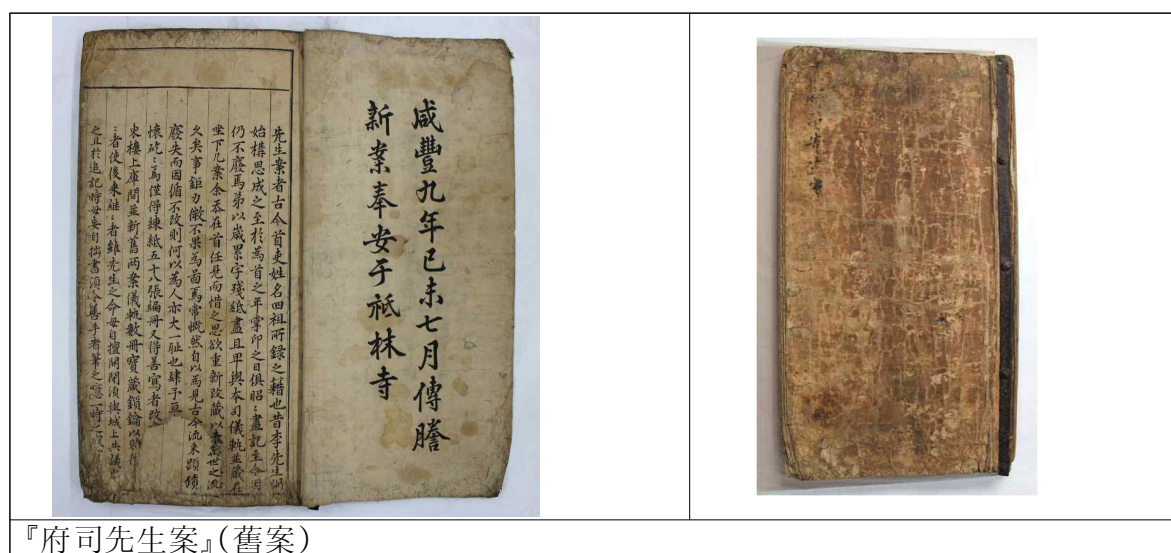 咸豐九年己未七月傳謄
新案奉安于祗林寺
先生案者古今首吏姓名四祖所錄之籍也昔李先生
始構思成之至於為首之年掌印之日俱昭〻盡記至今因
仍不廢焉第以歲累字殘紙盡且卑與本司儀軌並藏在
坐下几案余忝在首任見而惜之思欲重新改藏以 萬世之流
久矣事鉅力 不果為啚焉常慨然自以為見古今流來蹟
廢失而因循不改則何以為人亦大一耻也肆予
懷矻〻焉僅得練紙五十八張編冊又得善寫者改
東樓上庫間並新舊兩案儀軌數冊寶藏鎖鑰以
〻者使後來継〻者雖先生之命毋自擅開閉須與城上共議
之且於追記時毋妄自拙書須令善手者筆之 一時
『府司先生案』(舊案)